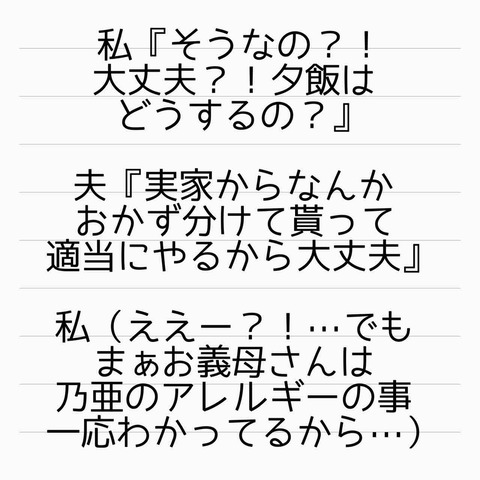 私『そうなの？！
大丈夫？！夕飯は
どうするの？』
夫『実家からなんか
おかず分けて貰って
適当にやるから大丈夫』
私（ええー？！…でも
まぁお義母さんは
乃亜のアレルギーの事
一応わかってるから…）